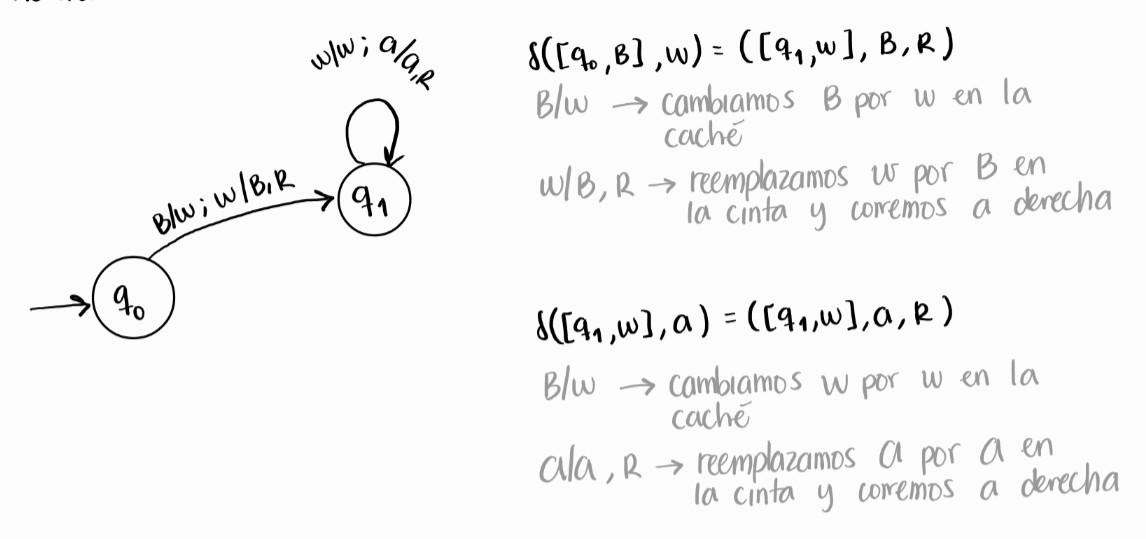 w/w ; a/a,R
B/w ; w/B,R
q₁
q₀
δ([q₀,B],w) = ([q₁,w], B, R)
B/w → cambiamos B por w en la
caché
w/B, R → reemplazamos w por B en
la cinta y corremos a derecha
δ([q₁,w],a) = ([q₁,w],a, R)
B/w → cambiamos w por w en la
caché
a/a, R → reemplazamos a por a en
la cinta y corremos a derecha